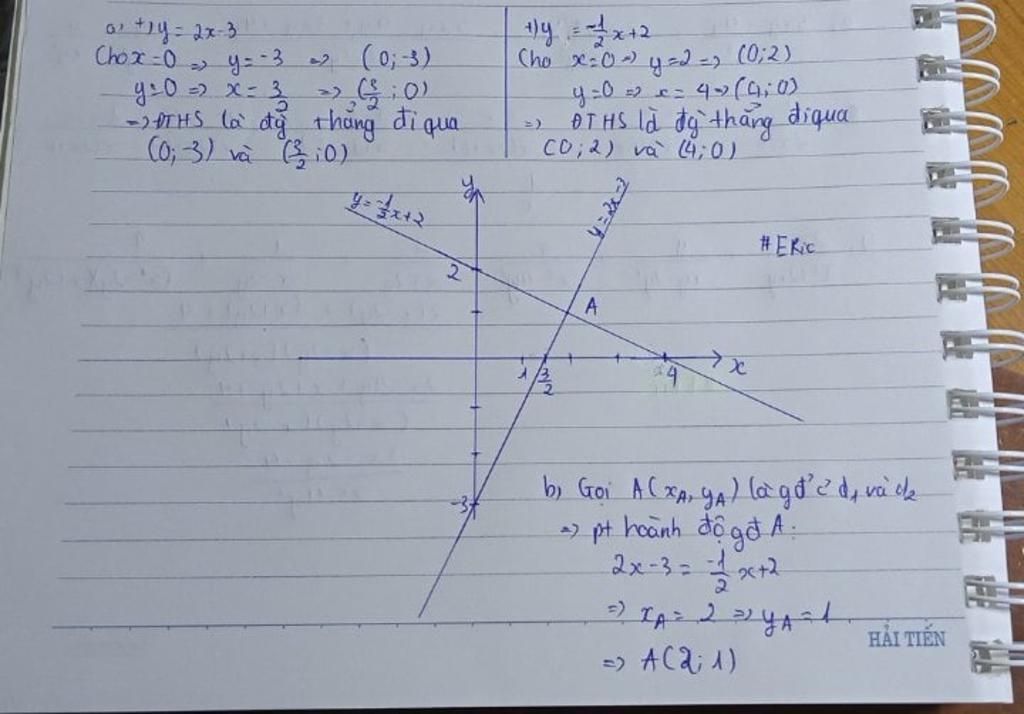 a, +) y = 2x-3
Cho x=0 => y=-3 => (0;-3)
y=0 => x= 3/2 => (3/2;0)
=> ĐTHS là đg̀ thẳng đi qua
(0;-3) và (3/2;0)
+) y = -1/2 x+2
Cho x=0 => y=2 => (0;2)
y=0 => x= 4 => (4;0)
=> ĐTHS là đg̀ thẳng đi qua
(0;2) và (4;0)
y
y= -1/2 x+2
y=2x-3
#ERic
2
A
x
1
3/2
4
-3
b, Gọi A(xA, yA) là gđ' c̉ d1 và d2
=> pt hoành độ gđ A:
2x-3 = -1/2 x+2
=> xA= 2 => yA=1
=> A(2;1)
HẢI TIẾN